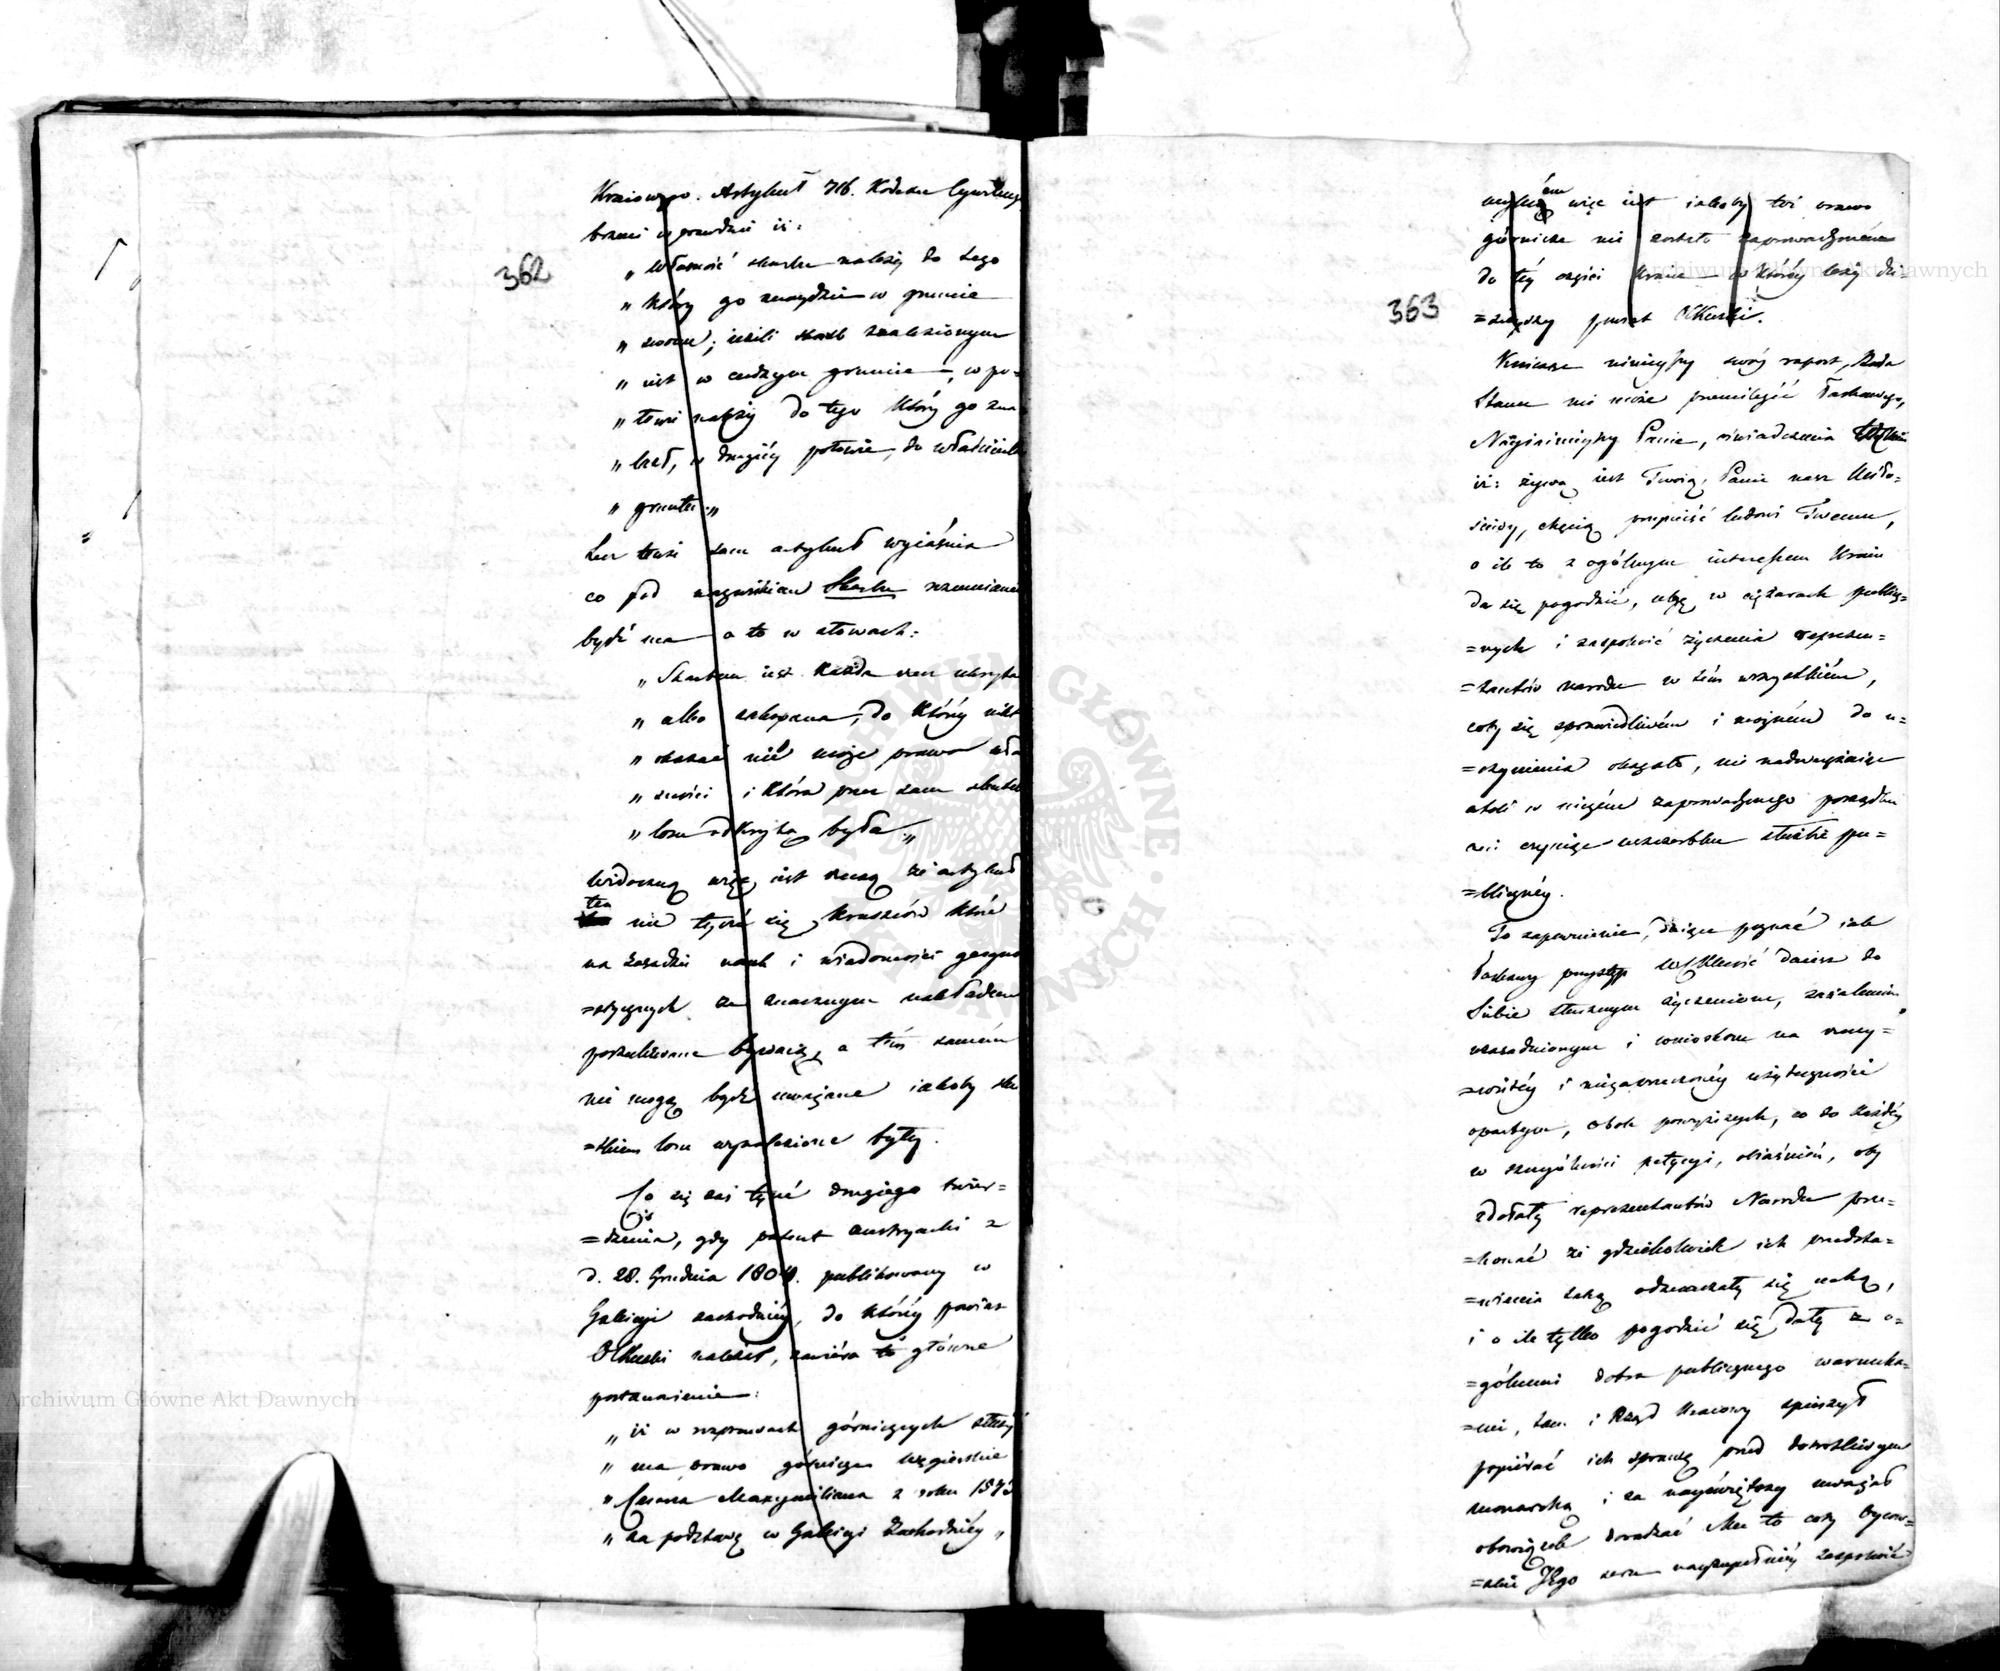 362
Kraiowego. Artykuł 716. Kodexu Cywilneg.
brzmi wprawdzie iż:
„ Własność skarbu należy do tego
„ który go znaydzie w gruncie
„ swoim; ieżeli skarb znaleziony
„ iest w cudzym gruncie, w po=
„ łowie należy do tego który go zna
„ lazł, w drugiéy połowie, do właściciela
„ gruntu. „
Lecz tenże sam artykuł wyiaśnia
co pod nazwiskiem Skarbu rozumiane
bydź ma a to w słowach:
„ Skarbem iest każda rzecz ukryta
„ albo zakopana, do któréy nikt
„ okazać nie może prawa wła
„ sności i która przez sam skutek
„ losu odkrytą była. „
Widoczną więc iest rzeczą że artykuł
ten nie tycze się kruszców które
na zasadzie nauk i wiadomości
za znacznym nakładem
poszukiwane bywaią, a tém samém
nie mogą bydź uważane iakoby sku
=tkiem losu wynalezione były.
Co się zaś tycze drugiego twier=
=dzenia, gdy patent austryacki z
d. 28. Grudnia 1804. publikowany w
Galicyi zachodniéy, do któréy powiat
Olkuski należał, zawiéra to główne
postanowienie:
„ iż w rozprawach górniczych służyć
„ ma prawo górnicze węgierskie
„ Cesarza Maxymiliana z roku 1573
„ za podstawę w Galicyi Zachodniéy „
363
więc iest iakoby też prawo
górnicze nie zostało zaprowadzone
do téy części kraiu w któréy leży dzi=
=sieyszy powiat Olkuski.
Kończąc ninieyszy swóy raport, Rada
Stanu nie może przemilczéć Łaskawego,
Nayiaśnieyszy Panie, oświadczenia
iż: żywą iest Twoią, Panie nasz Miło=
ściwy, chęcią przynieść ludowi Twemu,
o ile to z ogólnym interessem Kraiu
da się pogodzić, ulgę w ciężarach publicz=
=nych i zaspokoić życzenia reprezen=
=tantów narodu w tém wszystkiém,
coby się sprawiedliwém i możném do u=
=czynienia okazało, nie nadwerężaiąc
atoli w niczém zaprowadzonego porządku
ani czyniąc uszczerbku służbie pu=
=blicznéy.
To zapewnienie, daiące poznać iak
łaskawy przystęp daiesz do
Siebie słusznym życzeniom, zażaleniom
uzasadnionym i wnioskom na rzeczy=
=wistéy i niezaprzeczonéy użyteczności
opartym, obok powyższych, co do każdéy
w szczególności petycyi, obiaśnień, oby
zdołały reprezentantów Narodu prze=
=konać że gdziekolwiek ich przedsta=
=wienia taką odznaczały się cechą,
i o ile tylko pogodzić się dały z o=
=gólnemi dobra publicznego warunka=
=mi, tam i Rząd Kraiowy spieszył
popiérać ich sprawę przed dobrotliwym
monarchą i za nayświętszy uważał
obowiązek doradzać Mu to coby oycow=
=skie Jego serce nayzupełniéy zaspokoić
Archiwum Główne Akt Dawnych
Archiwum Główne Akt Dawnych
ARCHIWUM GŁÓWNE AKT DAWNYCH